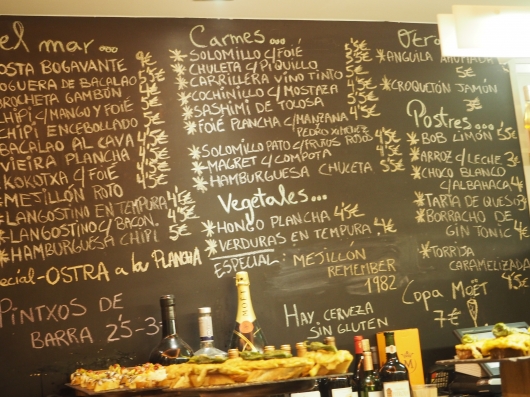 el mar...
OSTA BOGAVANTE 9€
OGUERA DE BACALAO 5'5€
BROCHETA GAMBÓN 5€
CHIPI C/MANGO Y FOIÉ
CHIPI ENCEBOLLADO 5€
BACALAO AL CAVA
VIEIRA PLANCHA
KOKOTXA C/FOIÉ
*MEJILLÓN ROTO
*LANGOSTINO EN TEMPURA 4'5€
*LANGOSTINO C/BACON
*HAMBURGUESA CHIPI 5€
ecial-OSTRA a la PLANCHA
PINTXOS DE
BARRA 2'5-3
Carmes...
*SOLOMILLO C/FOIÉ 5'5€
*CHULETA C/PIQUILLO 5€
*CARRILLERA VINO TINTO
*COCHINILLO C/MOSTAZA
*SASHIMI DE TOLOSA
*FOIÉ PLANCHA C/MANZANA
PEDRO XIMENEZ
*SOLOMILLO PATO C/FRUTOS ROJOS
*MAGRET C/COMPOTA
*HAMBURGUESA CHULETA 5'5€
Vegetales...
*HONGO PLANCHA 4'5€
*VERDURAS EN TEMPURA 4€
ESPECIAL: MEJILLÓN
REMEMBER
1982
HAY CERVEZA
SIN GLUTEN
Otro
*ANGUILA AHUMADA
5€
*CROQUETÓN JAMÓN
3€
Postres...
*BOB LIMÓN 5'5€
*ARROZ C/LECHE 3€
*CHOCO BLANCO
C/ALBAHACA 4'
*TARTA DE QUESO
*BORRACHO DE
GIN TONIC 4€
*TORRIJA
CARAMELIZADA
4'5€
COPA MOËT
7€